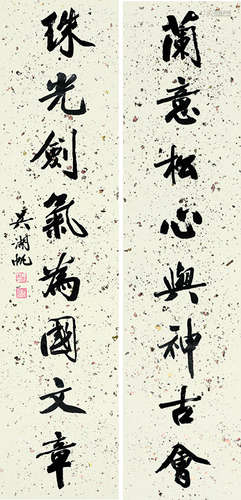 蘭意松心與神古會
珠光劍氣為國文章
吳湖帆